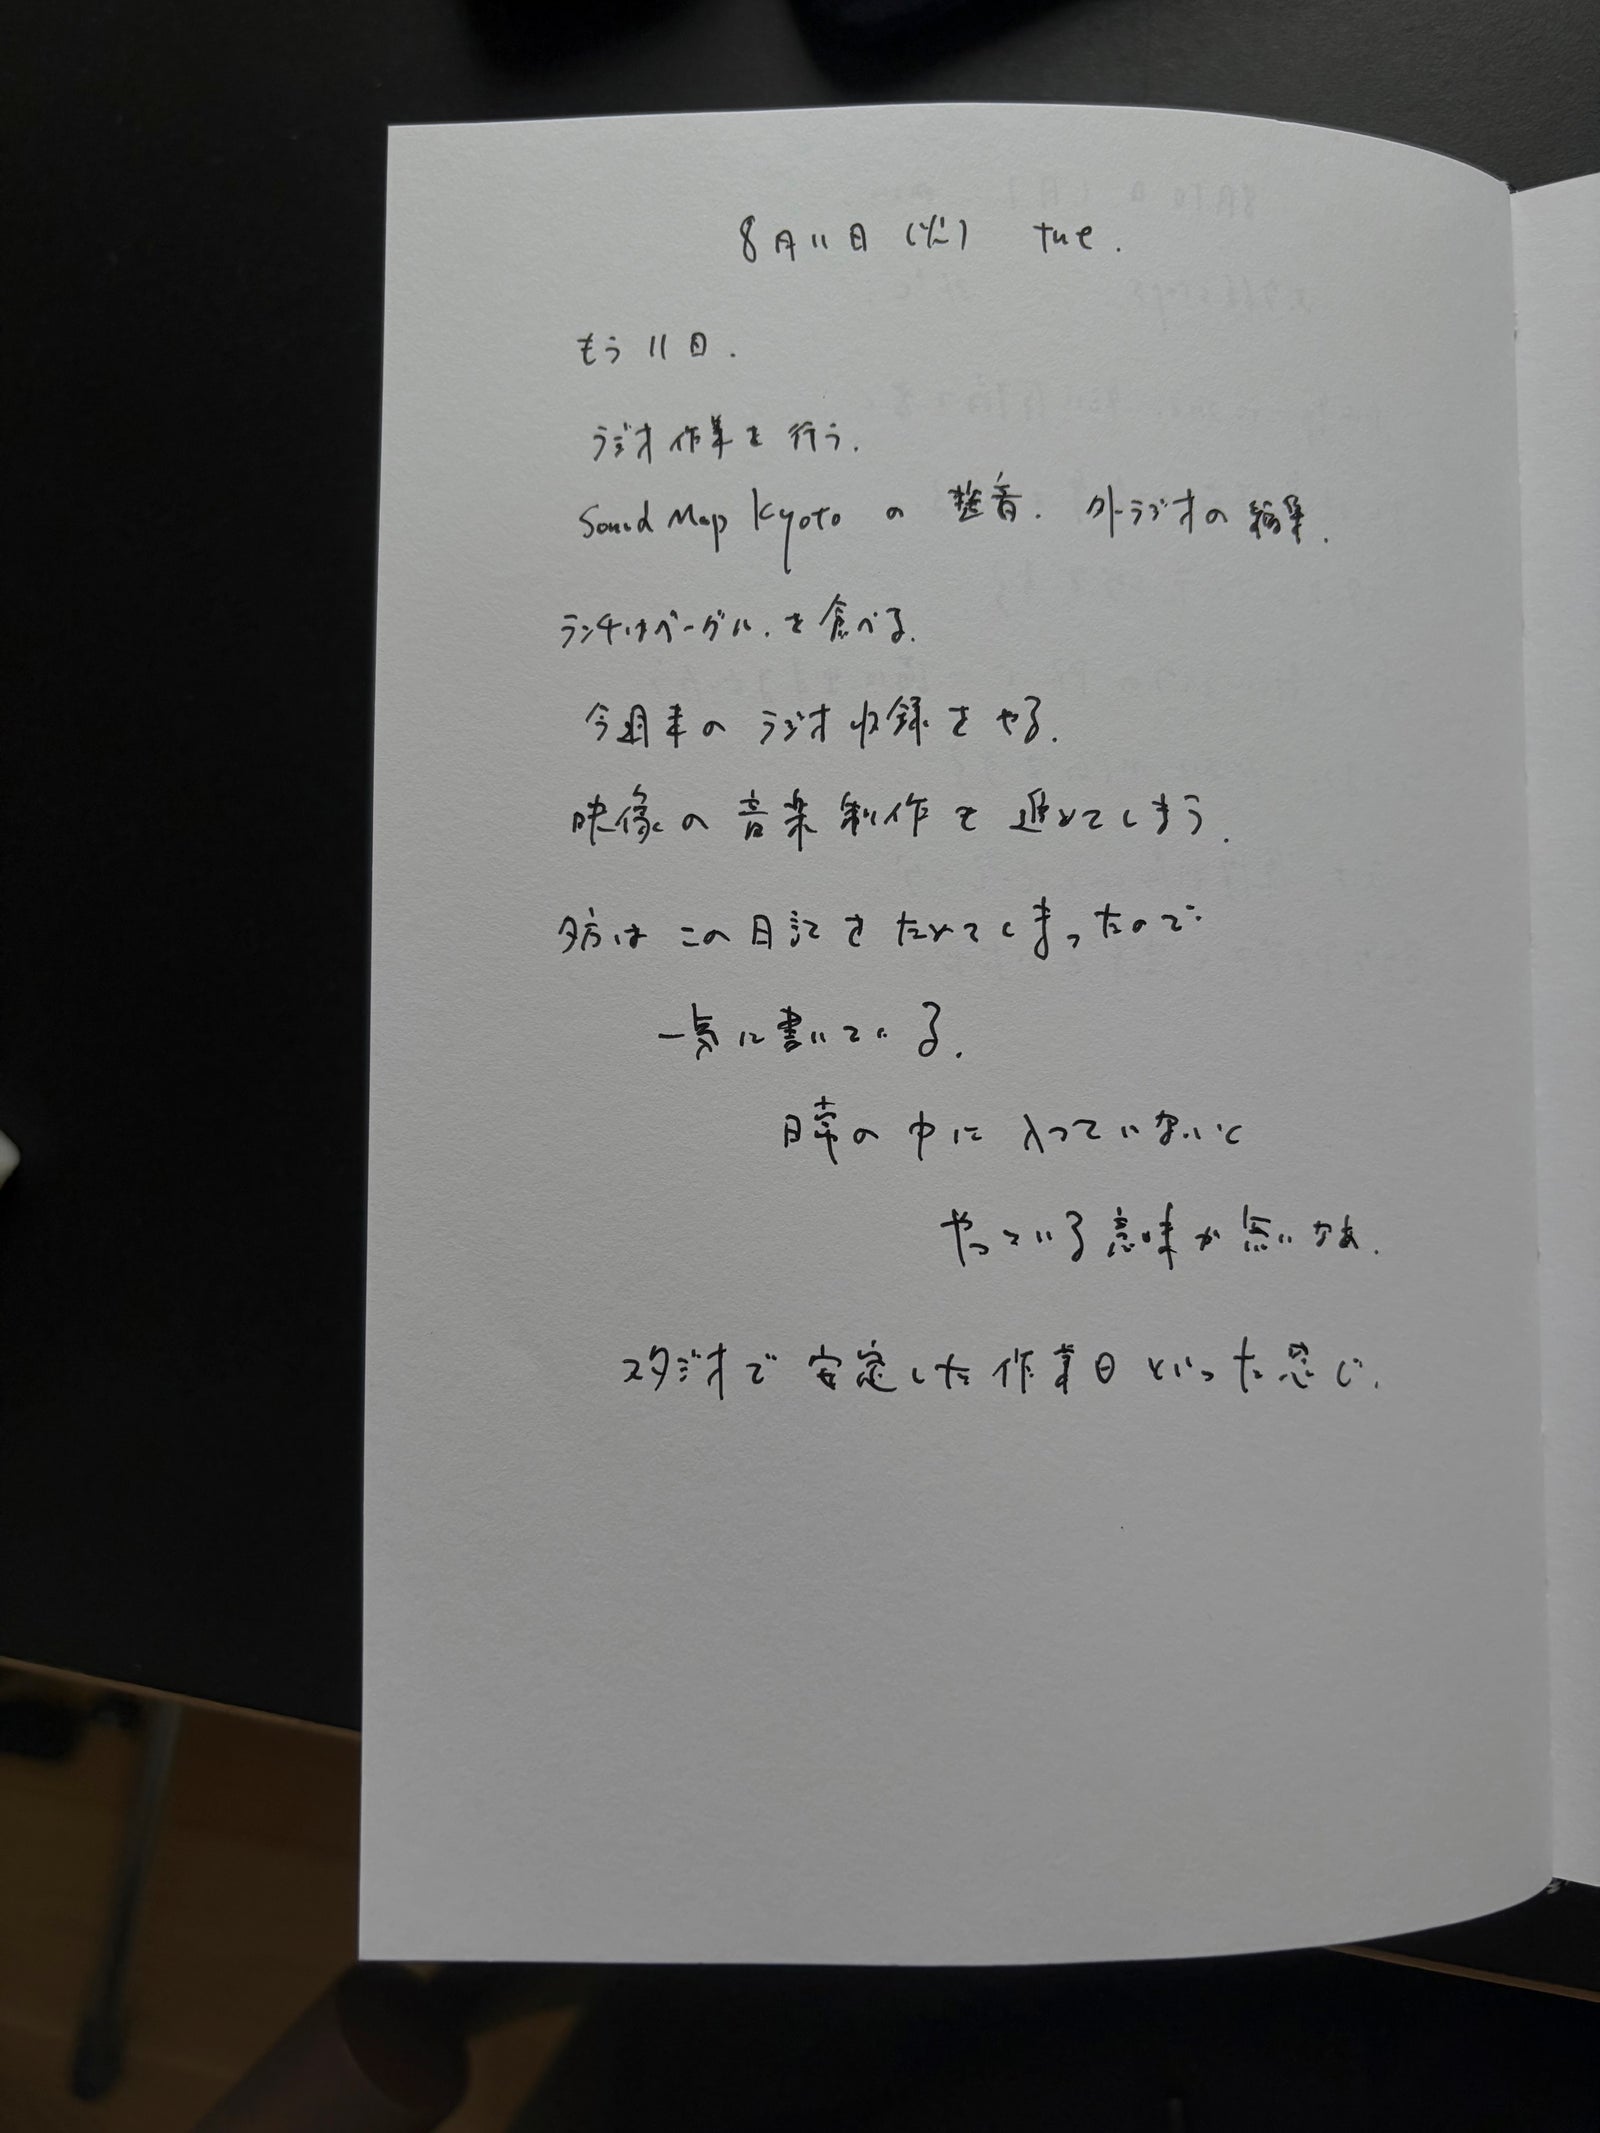 8月11日（火） tue.
もう11日.
ラジオ作業を行う.
Sound Map Kyoto の 整音. 外ラジオの編集.
ランチはベーグル.を食べる.
今週末のラジオ収録をやる.
映像の音楽制作を進めてしまう.
夕方はこの日記をためてしまったので
一気に書いている.
日常の中に入っていないと
やっている意味が無いなあ.
スタジオで安定した作業日といった感じ.